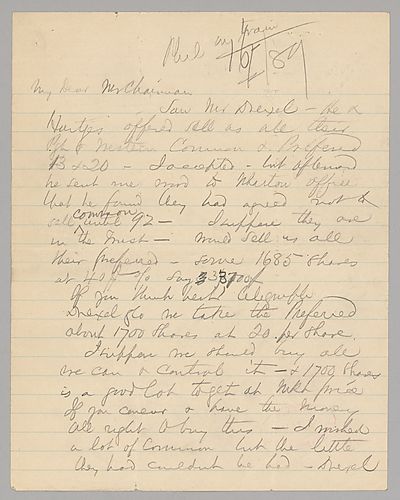 Phil
My Dear Mr Chairman
Saw Mr Drexel — he &
offered sell us all their
Western Common & Preferred
13 & 20 — I accepted — but afterward
he sent me word to Wharton office
that he found they had agreed not to
sell common until 92 — I suppose they are
in the Trust — would sell us all
their preferred — some 1685 shares
at 40% say
If you think best telegraph
Drexel & Co we take the Preferred
about 1700 Shares at 20 per share.
I suppose we should buy all
we can & control it — & 1700 Shares
is a good lot to get at mkt price
If you concur & have the money
all right to buy this — I wished
a lot of Common but the little
they had couldn't be had — Drexel